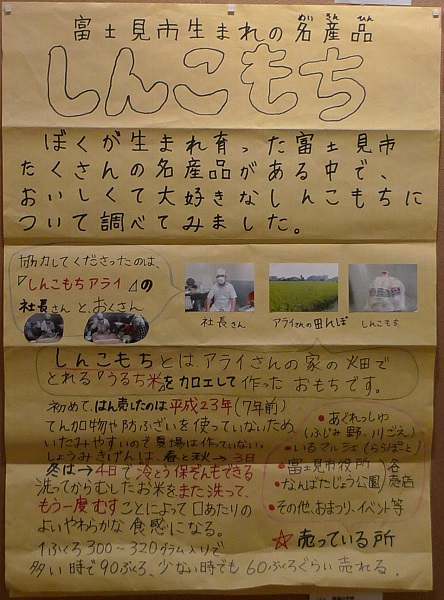 富士見市生まれの名産品
めいさんひん
しんこもち
ぼくが生まれ育った富士見市
たくさんの名産品がある中で、
おいしくて大好きなしんこもちに
ついて調べてみました。
協力してくださったのは、
『しんこもちアライ』の
社長さんと、おくさん
社長さん
アライさんの田んぼ
しんこもち
しんこもちとは、アライさんの家の畑で
とれる『うるち米』をカロエして作ったおもちです。
初めて、はん売したのは平成23年(7年前)
てん加物や防ふざいを使っていないため
いたみやすいので夏場は作っていない。
しょうみきげんは、春と秋→3日
冬は→4日で冷とう保ぞんもできる
洗ってからむしたお米をまた洗って、
もう一度むすことによって口あたりの
よいやわらかな食感になる。
1ふくろ300～320グラム入りで
多い時で90ぶくろ、少ない時でも60ぶくろぐらい売れる。
•あぐれっしゅ
(ふじみ野、川ごえ)
•いるマルシェ(ららぽーと)
•富士見市役所
•なんばたじょう公園
各売店
•その他、おまつり、イベント等
☆売っている所